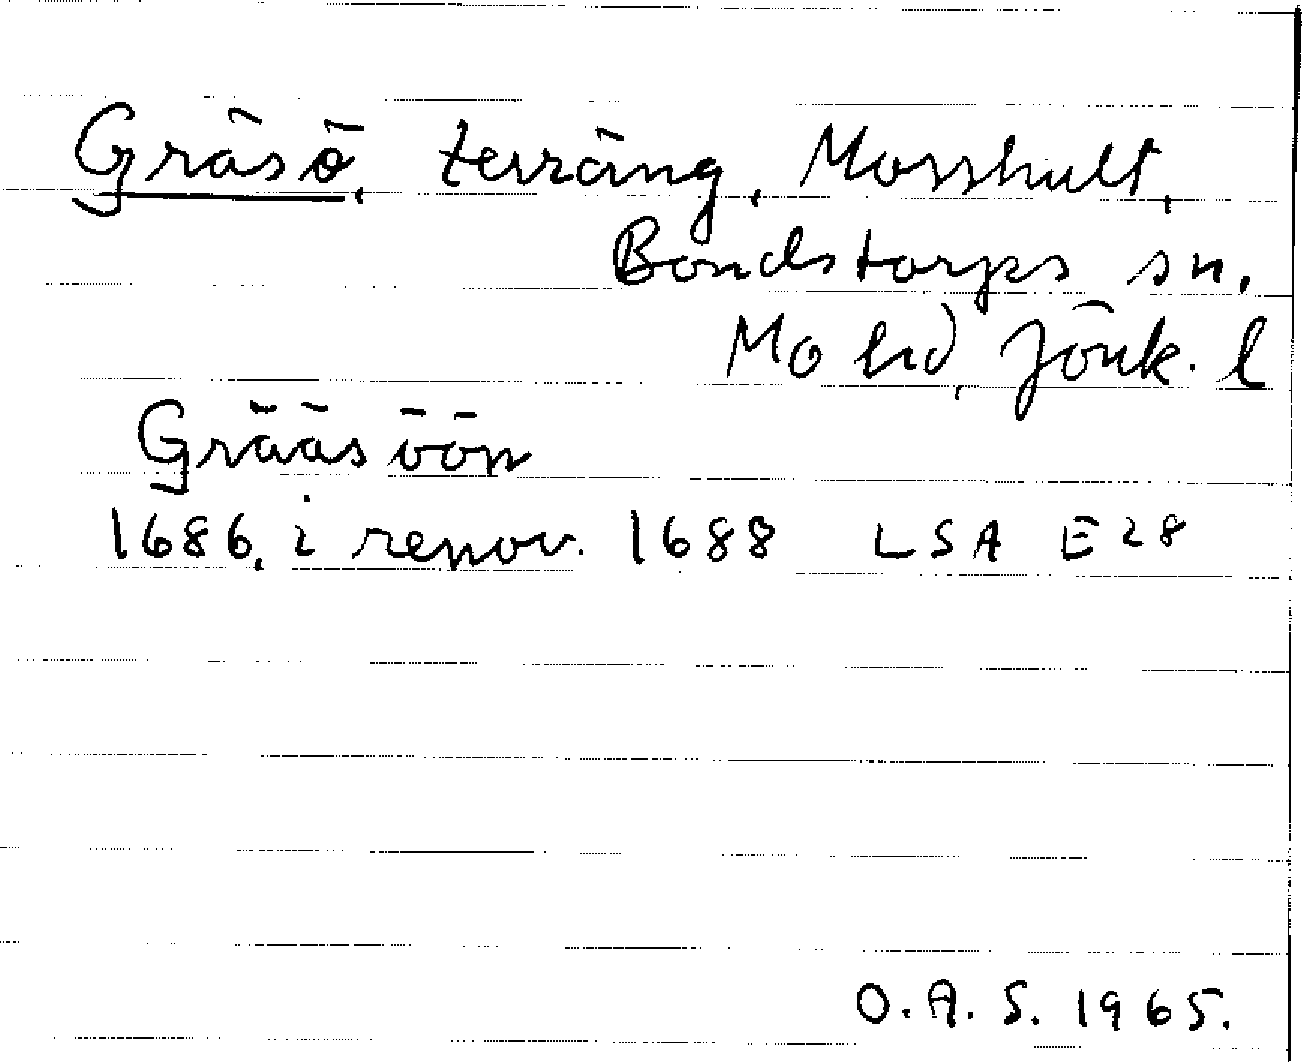 Gräsö, terräng, Mosshult,
Bondstorps sn,
Mo hd, Jönk. l
Grääsöön
1686, i renov. 1688 LSA E28
O.A.S. 1965.